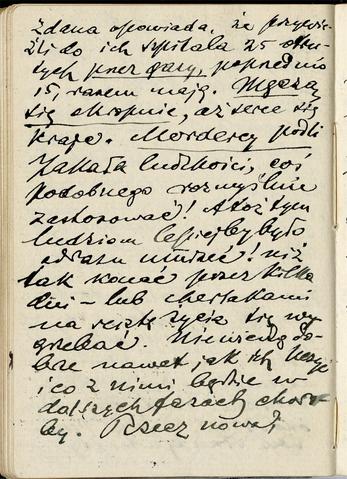 Żdana opowiada, że przywie-
źli do ich szpitala 25 otru-
tych przez gazy, poprzednio
15, razem mają. Męczą
się okropnie, aż serce się
kraje. Mordercy podli
Zakała ludzkości, coś
podobnego rozmyślnie
zastosować! A toż tym
ludziom lepiej by było
odrazu umrzeć! niż
tak konać przez kilka
dni – lub cherlakami
na resztę życia się wy
grzebać. Nie wiedzą do-
brze nawet jak ich leczyć
i co z nimi będzie w
dalszych fazach choro-
by. Rzecz nowa!